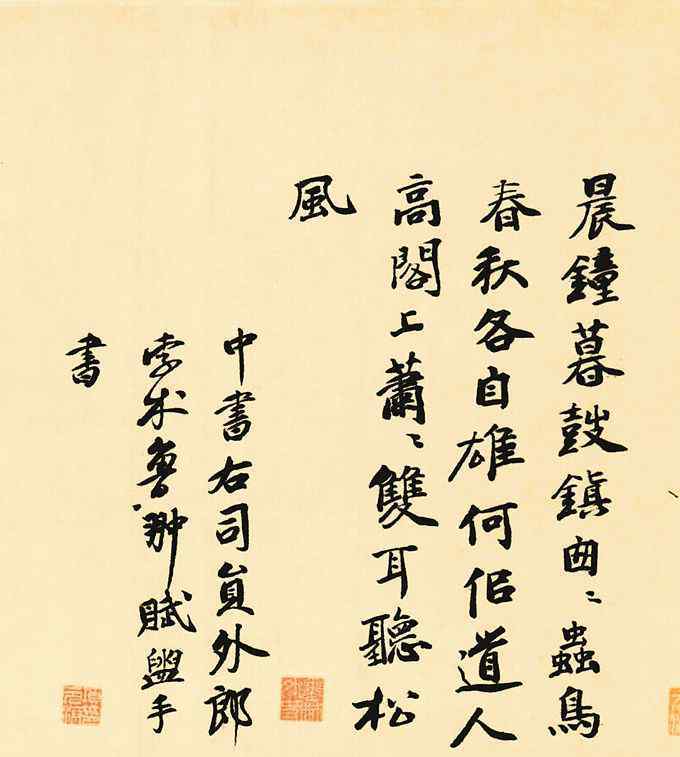 晨鐘暮鼓鎮囪〻蟲鳥
春秋各自雄何佀道人
高閣上蕭〻雙耳聽松
風
中書右司貟外郎
孛术魯翀賦盥手
書